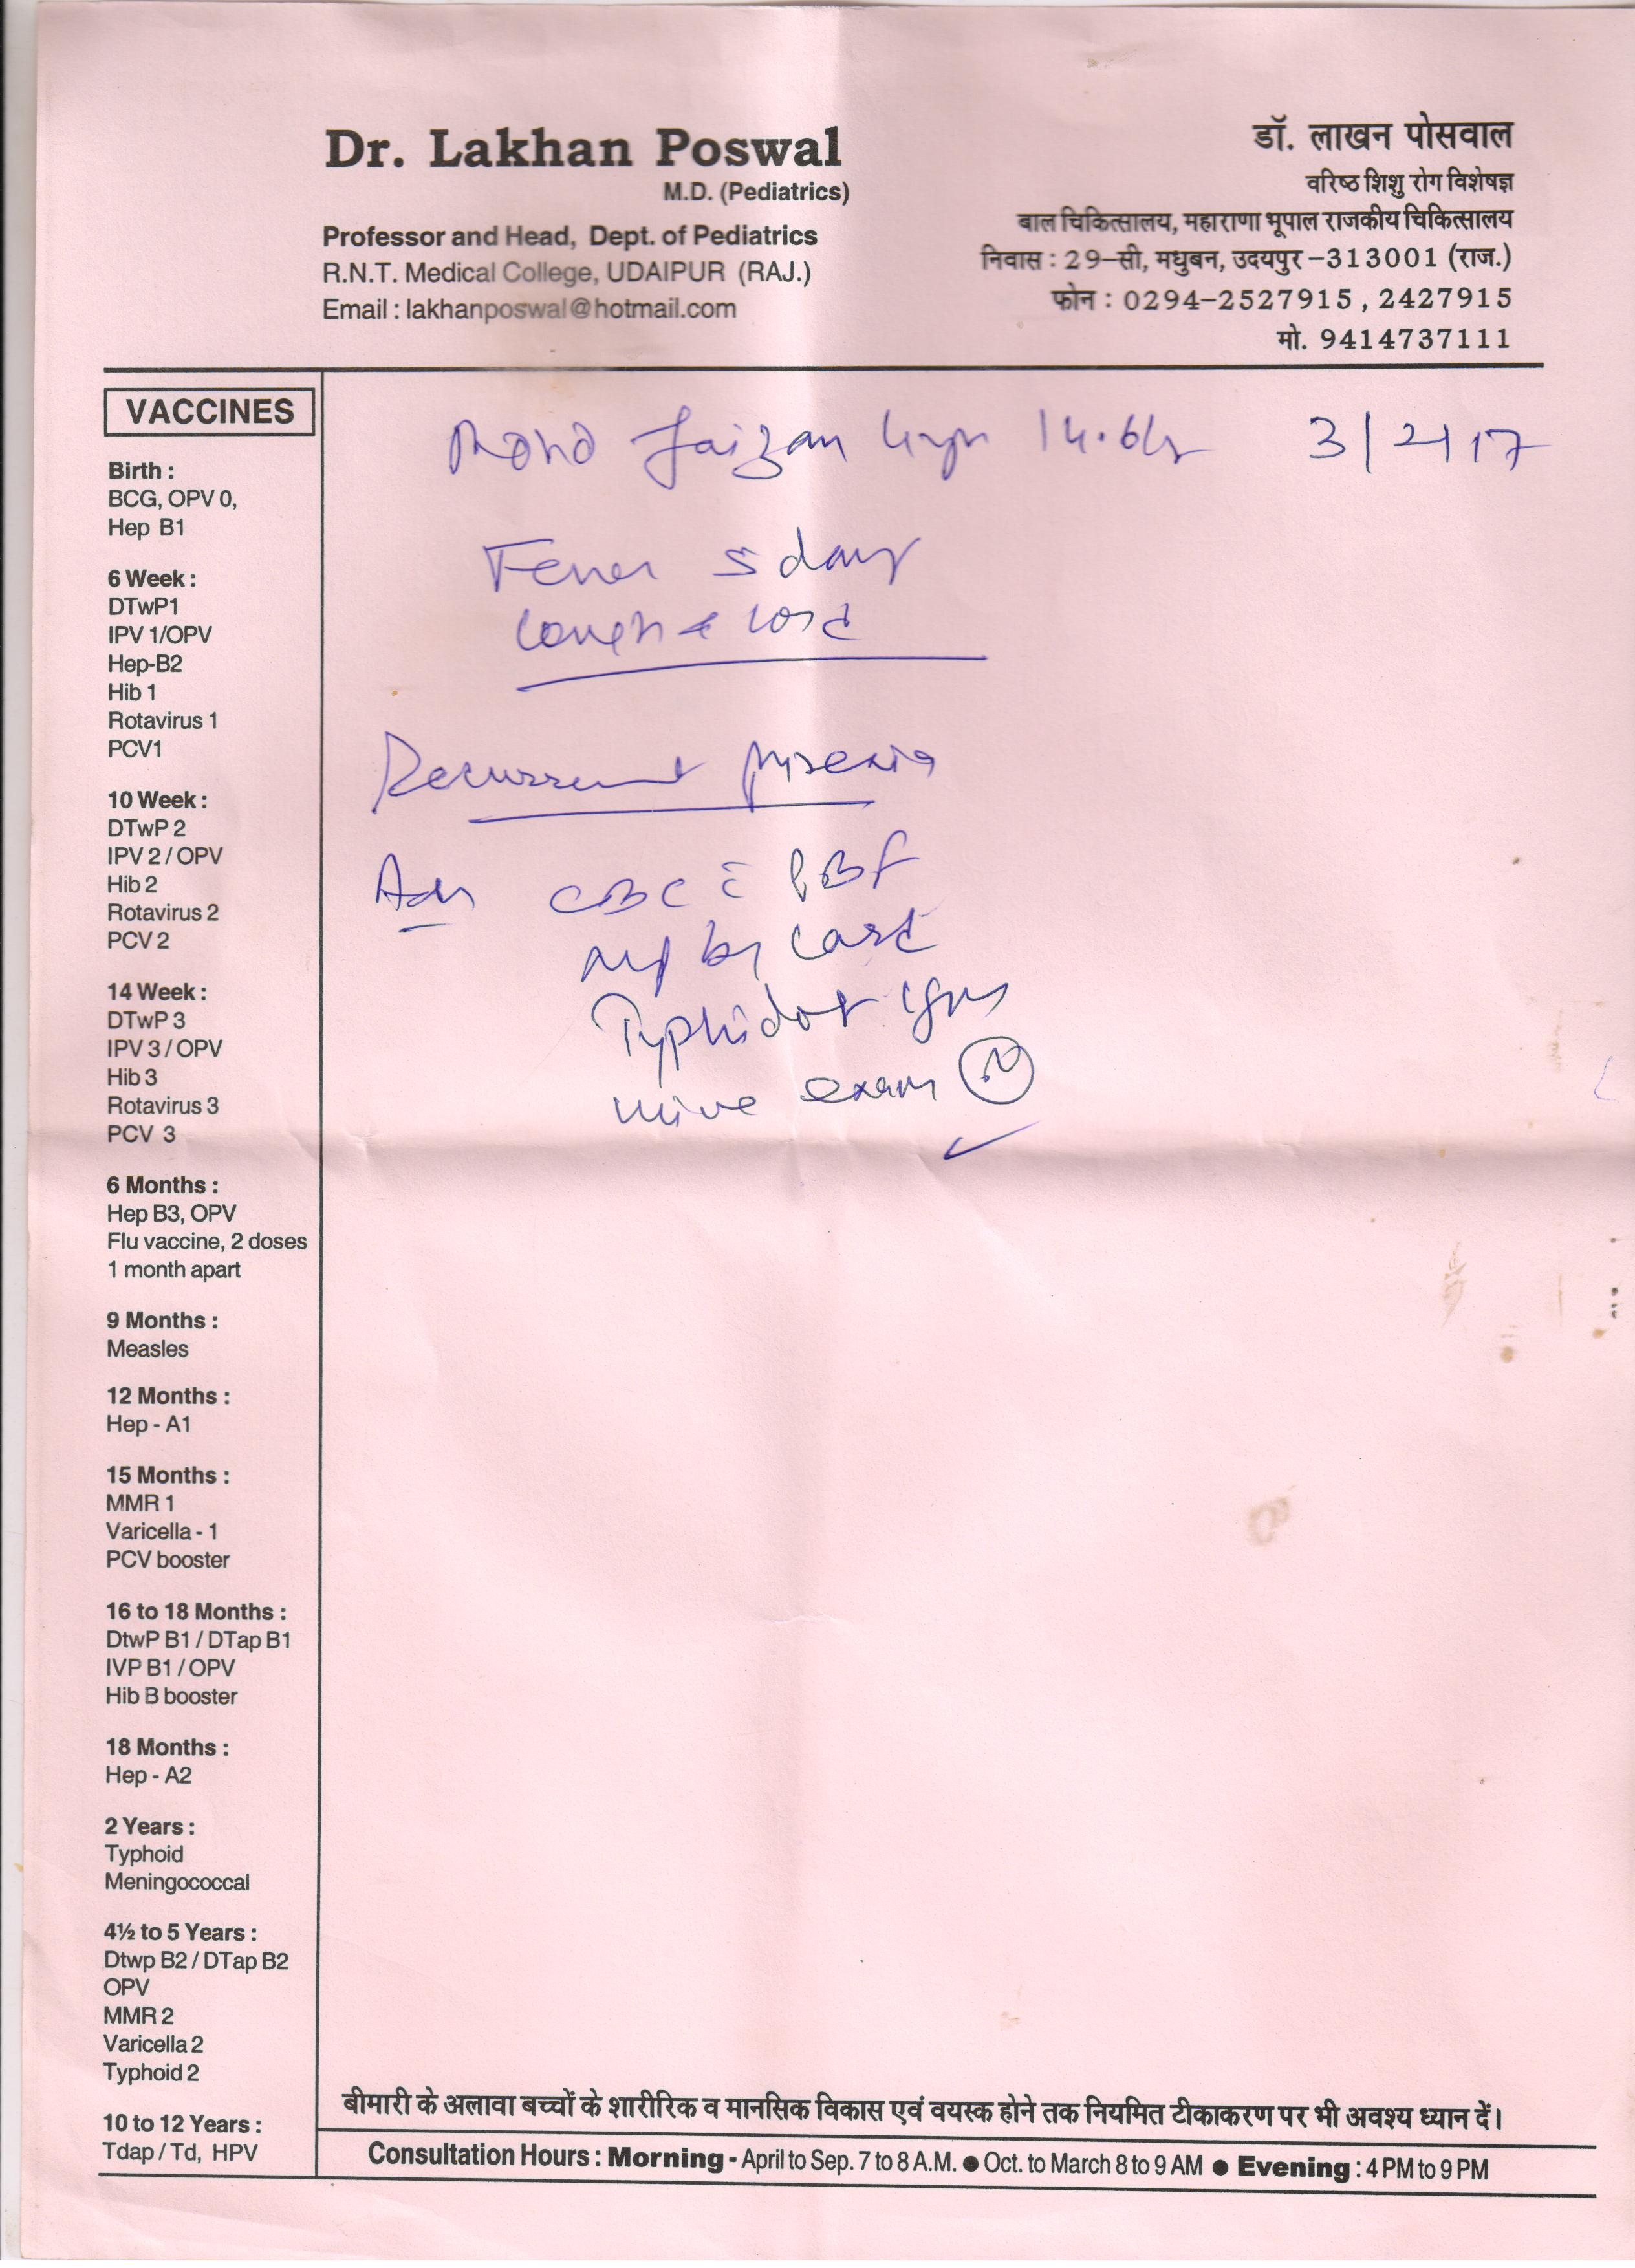 Dr. Lakhan Poswal
M.D. (Pediatrics)
Professor and Head, Dept. of Pediatrics
R.N.T. Medical College, UDAIPUR (RAJ.)
Email : lakhanposwal@hotmail.com
डॉ. लाखन पोसवाल
वरिष्ठ शिशु रोग विशेषज्ञ
बाल चिकित्सालय, महाराणा भूपाल राजकीय चिकित्सालय
निवास : 29–सी, मधुबन, उदयपुर –313001 (राज.)
फोन : 0294–2527915 , 2427915
मो. 9414737111
VACCINES
Birth :
BCG, OPV 0,
Hep B1
6 Week :
DTwP1
IPV 1/OPV
Hep-B2
Hib 1
Rotavirus 1
PCV1
10 Week :
DTwP 2
IPV 2 / OPV
Hib 2
Rotavirus 2
PCV 2
14 Week :
DTwP 3
IPV 3 / OPV
Hib 3
Rotavirus 3
PCV 3
6 Months :
Hep B3, OPV
Flu vaccine, 2 doses
1 month apart
9 Months :
Measles
12 Months :
Hep - A1
15 Months :
MMR 1
Varicella - 1
PCV booster
16 to 18 Months :
DtwP B1 / DTap B1
IVP B1 / OPV
Hib B booster
18 Months :
Hep - A2
2 Years :
Typhoid
Meningococcal
4½ to 5 Years :
Dtwp B2 / DTap B2
OPV
MMR 2
Varicella 2
Typhoid 2
10 to 12 Years :
Tdap / Td, HPV
Mohd Faizan 4yr 14.6k 3/2/17
Fever 5 days
Cough & cold
Recurrent pyrexia
Adv CBC c̄ PBF
MP by card
Typhidot IgM
urine exam
बीमारी के अलावा बच्चों के शारीरिक व मानसिक विकास एवं वयस्क होने तक नियमित टीकाकरण पर भी अवश्य ध्यान दें।
Consultation Hours : Morning - April to Sep. 7 to 8 A.M. ● Oct. to March 8 to 9 AM ● Evening : 4 PM to 9 PM